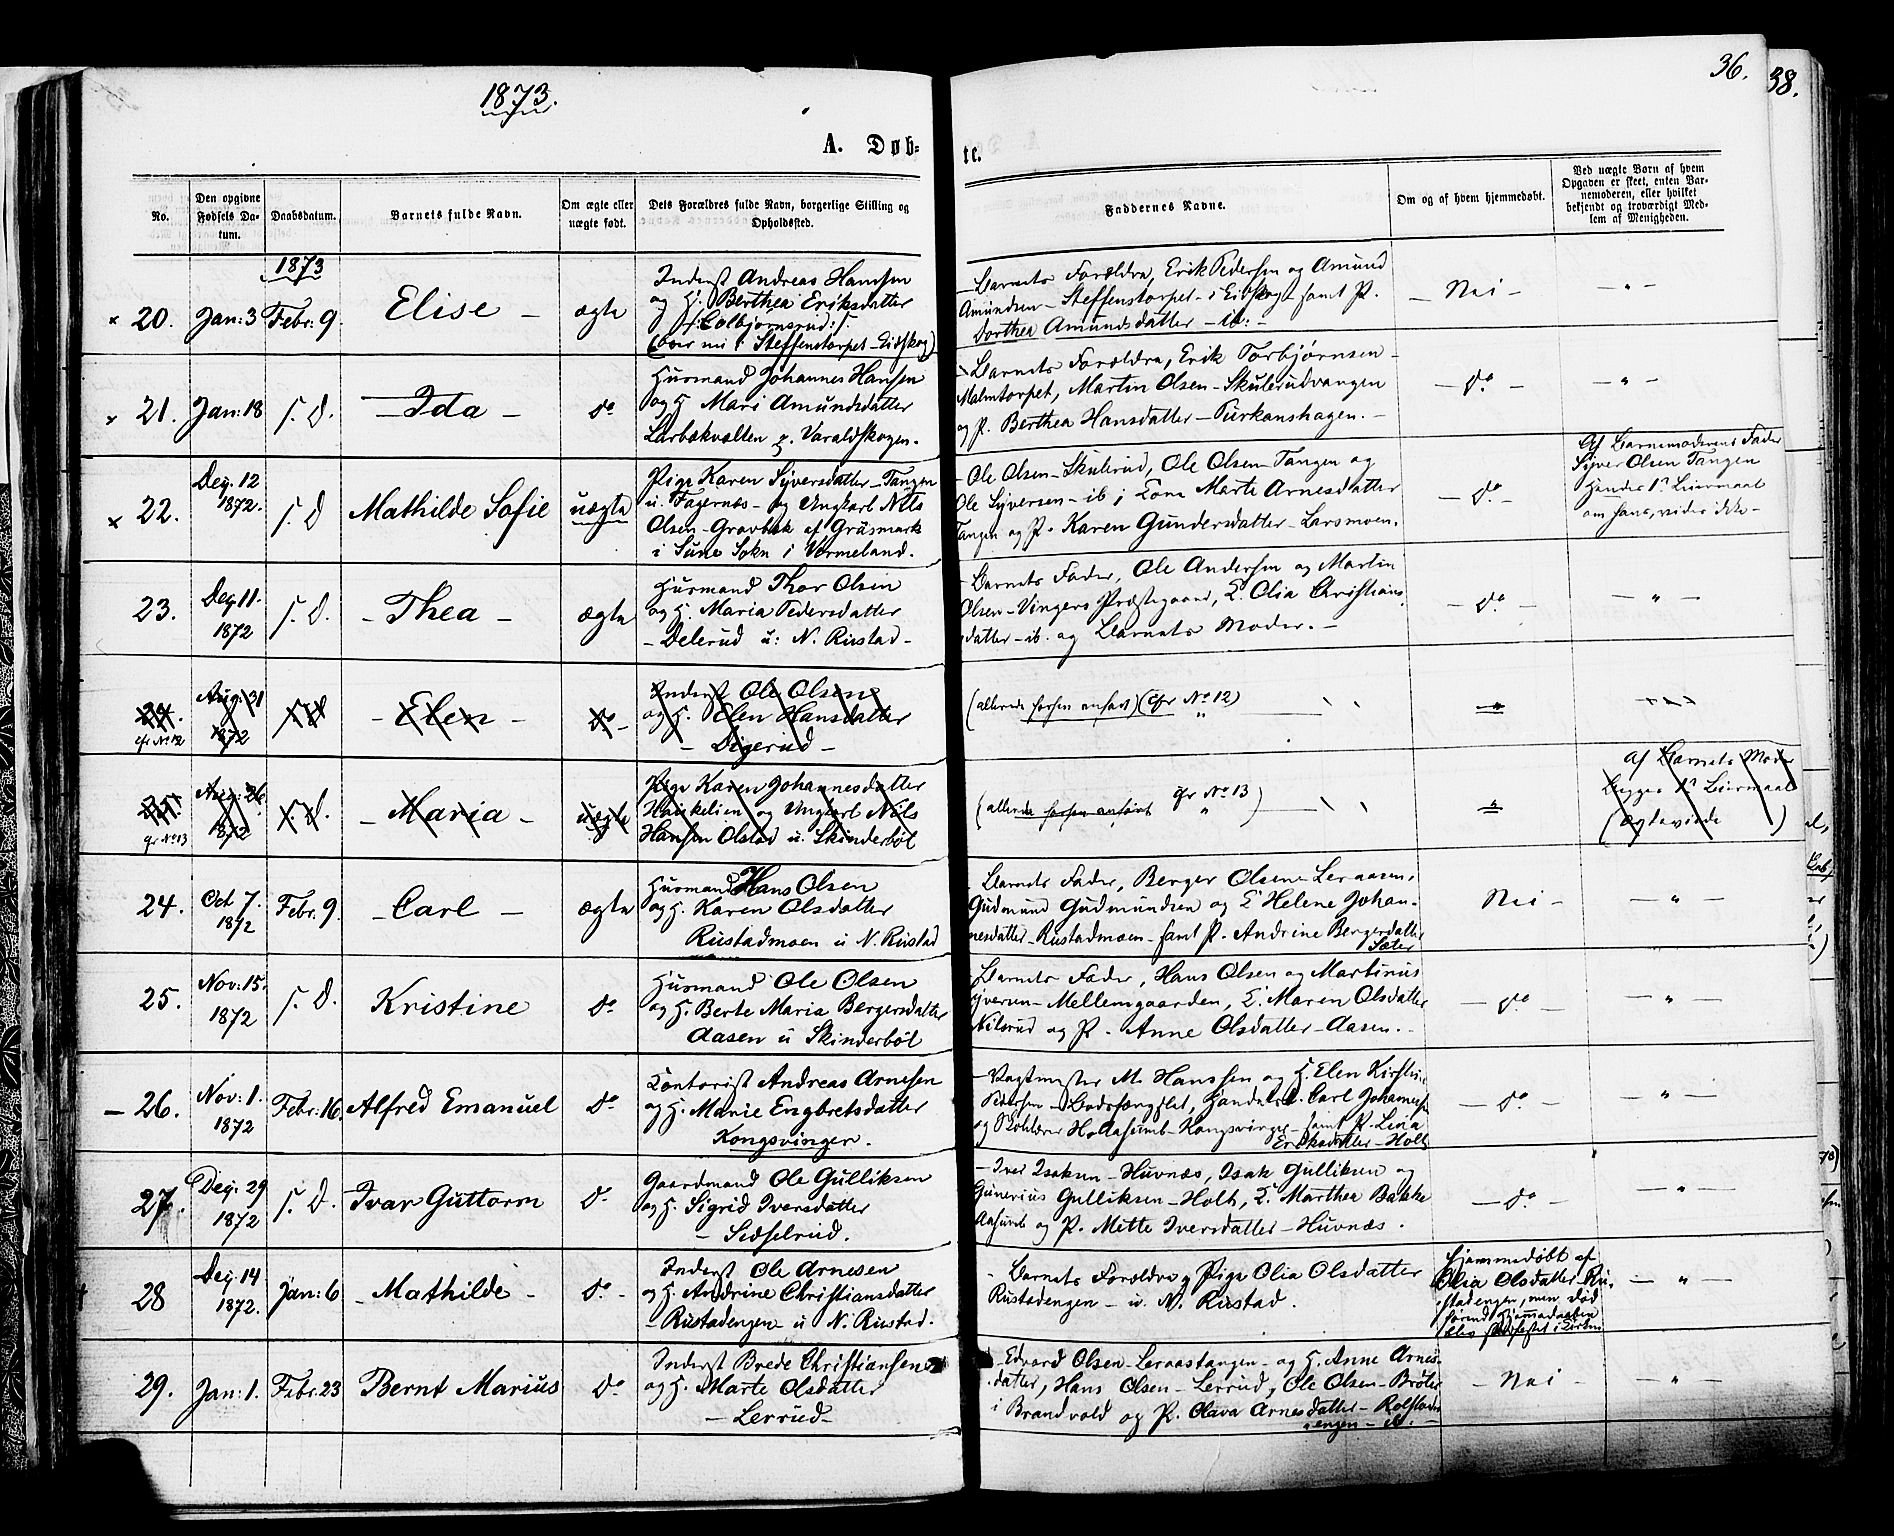 1873.
36.
38.
A. Døb-
te.
No.
Den opgivne
Fødsels Da-
tum.
Daabsdatum.
Barnets fulde Navn.
Om ægte eller
uægte født.
Dets Forældres fulde Navn, borgerlige Stilling og
Opholdssted.
Faddernes Navne.
Om og af hvem hjemmedøbt.
Ved uægte Børn af hvem
Opgaven er skeet, enten Bar-
nemoderen, eller hvilket
bekjendt og troværdigt Med-
lem af Menigheden.
1873
× 20. Jan: 3 Febr: 9. Elise – ægte
Inderst Andreas Hansen
og H. Berthea Eriksdatter
/: Colbjørnsrud :/.
(bor nu i Steffenstorpet – Eidskog)
– Barnets Forældre, Erik Pedersen og Amund
Amundsen – Steffenstorpet – i Eidskog – samt P.
Dorthea Amundsdatter – ib: –
– Nei – – " –
× 21. Jan: 18 s. D. – Ida – do
Husmand Johannes Hansen
og H. Mari Amundsdatter
Varaldskogen.
– Barnets Forældre, Erik Torbjørnsen –
Malmtorpet, Martin Olsen – Skulerudvangen
og P. Berthea Hansdatter – Purkanshagen. –
– do – – " –
× 22. Deç. 12
1872. s. D Mathilde Sofie uægte
Pige Karen Syversdatter – Tangen
u. Fagernæs – og Ungkarl Nils
Olsen – Gravbak af Gräsmark
i Sune Sokn i Vermeland.
– Ole Olsen – Skulerud, Ole Olsen – Tangen og
Ole Syversen – ib; Kone Marte Arnesdatter
Tangen og P. Karen Gundersdatter – Larsmoen.
– do –
Af Barnemoderens Fader
Syver Olsen Tangen
Hendes 1ste Leiermaal
om hans, vides ikke –
23. Deç 11.
1872 s. D. – Thea – ægte
Husmand Thor Olsen
og H. Maria Pedersdatter
– Delerud u: N. Rustad –
– Barnets Fader, Ole Andersen og Martin
Olsen – Vingers Præstegaard, K. Olia Christians
datter – ib. og Barnets Moder. –
– do – – " –
24.
cfr No 12 Aug: 31
1872 s. D – Elen – do –
Inderst Ole Olsen
og H. Elen Hansdatter
– Digerud –
(allerede forhen anført) (cfr No 12)
25.
cfr No 13 Aug: 26
1872 s. D. – Maria – uægte
Pige Karen Johannesdatter
Haukelien og Ungkarl Nils
Hansen Olstad u. Skinderbøl
(allerede forhen anført cfr No 13)
Af Barnets Moder
Begges 1ste Leiermaal
(Ægteviede)
24. Oct 7.
1872 Febr. 9. – Carl – ægte
Husmand Hans Olsen
og H. Karen Olsdatter
Rustadmoen u N. Rustad
– Barnets Fader, Berger Olsen – Leraasen,
Gudmund Gudmundsen og K Helene Johan-
nesdatter – Rustadmoen – samt P. Andrine Bergersdatter
Sæter
Nei – – " –
25. Nov: 15.
1872 s. D. Kristine do
Husmand Ole Olsen
og H. Berte Maria Bergersdatter
Aasen u Skinderbøl
Barnets Fader, Hans Olsen og Martinus
Syversen – Mellemgaarden, K. Maren Olsdatter
Nilsrud og P. Anne Olsdatter – Aasen. –
– do – – " –
– 26. Nov: 1.
1872 Febr: 16. Alfred Emanuel do
Kontorist Andreas Arnesen
og H. Marie Engbretsdatter
Kongsvinger.
– Vagtmester M. Hanssen og H. Elen Kirstine
Pedersen – Bodsfængslet, Handelsb. Carl Johannesen
og Skolelærer Hollasund – Kongsvinger – samt P. Lina
Eriksdatter – Holt
– do – – " –
27. Deç: 29
1872 s. D. Ivar Guttorm do
Gaardmand Ole Gulliksen
og H. Sigrid Iversdatter
– Sidselrud.
– Iver Isaksen – Huvnæs, Isak Gulliksen og
Gunerius Gulliksen – Holt, K. Marthea Bakke
Aasund og P. Mette Iversdatter – Huvnæs.
– do – – " –
28 Deç. 14
1872. Jan: 6 – Mathilde – do –
Inderst Ole Arnesen
og H. Andrine Christiansdatter
– Rustadengen u N. Rustad.
– Barnets Forældre og Pige Olia Olsdatter
Rustadengen – u. N. Rustad.
Hjemmedøbt af
Olia Olsdatter – Ru-
stadengen, men død
førend Hjemmedaaben
blev stadfæstet i Kirken
– " –
29. Jan: 1. Febr. 23 Bernt Marius do
Inderst Brede Christiansen
og H. Marte Olsdatter
– Lerrud –
– Edvard Olsen – Leraastangen – og H. Anne Arnes-
datter, Hans Olsen – Lerrud, Ole Olsen – Brøter
i Brandvold og P. Olava Arnesdatter – Rolstad-
engen – ib. –
– Nei – – " –